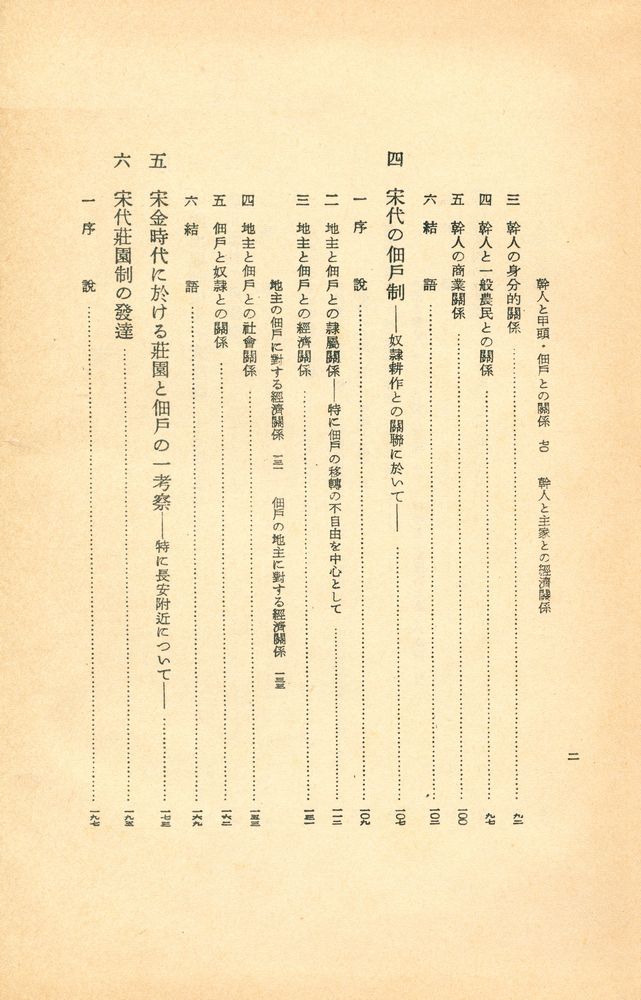 幹人と甲頭・佃戶との關係 七〇 幹人と主家との經濟關係
三 幹人の身分的關係……九二
四 幹人と一般農民との關係……九七
五 幹人の商業關係……一〇〇
六 結語……一〇三
四 宋代の佃戶制——奴隷耕作との關聯に於いて——……一〇七
一 序說……一〇九
二 地主と佃戶との隷屬關係——特に佃戶の移轉の不自由を中心として……一一二
三 地主と佃戶との經濟關係……一三一
地主の佃戶に對する經濟關係 一三一 佃戶の地主に對する經濟關係 一三三
四 地主と佃戶との社會關係……一五三
五 佃戶と奴隷との關係……一六二
六 結語……一六九
五 宋金時代に於ける莊園と佃戶の一考察——特に長安附近について——……一七三
六 宋代莊園制の發達……一九五
一 序說……一九七
二